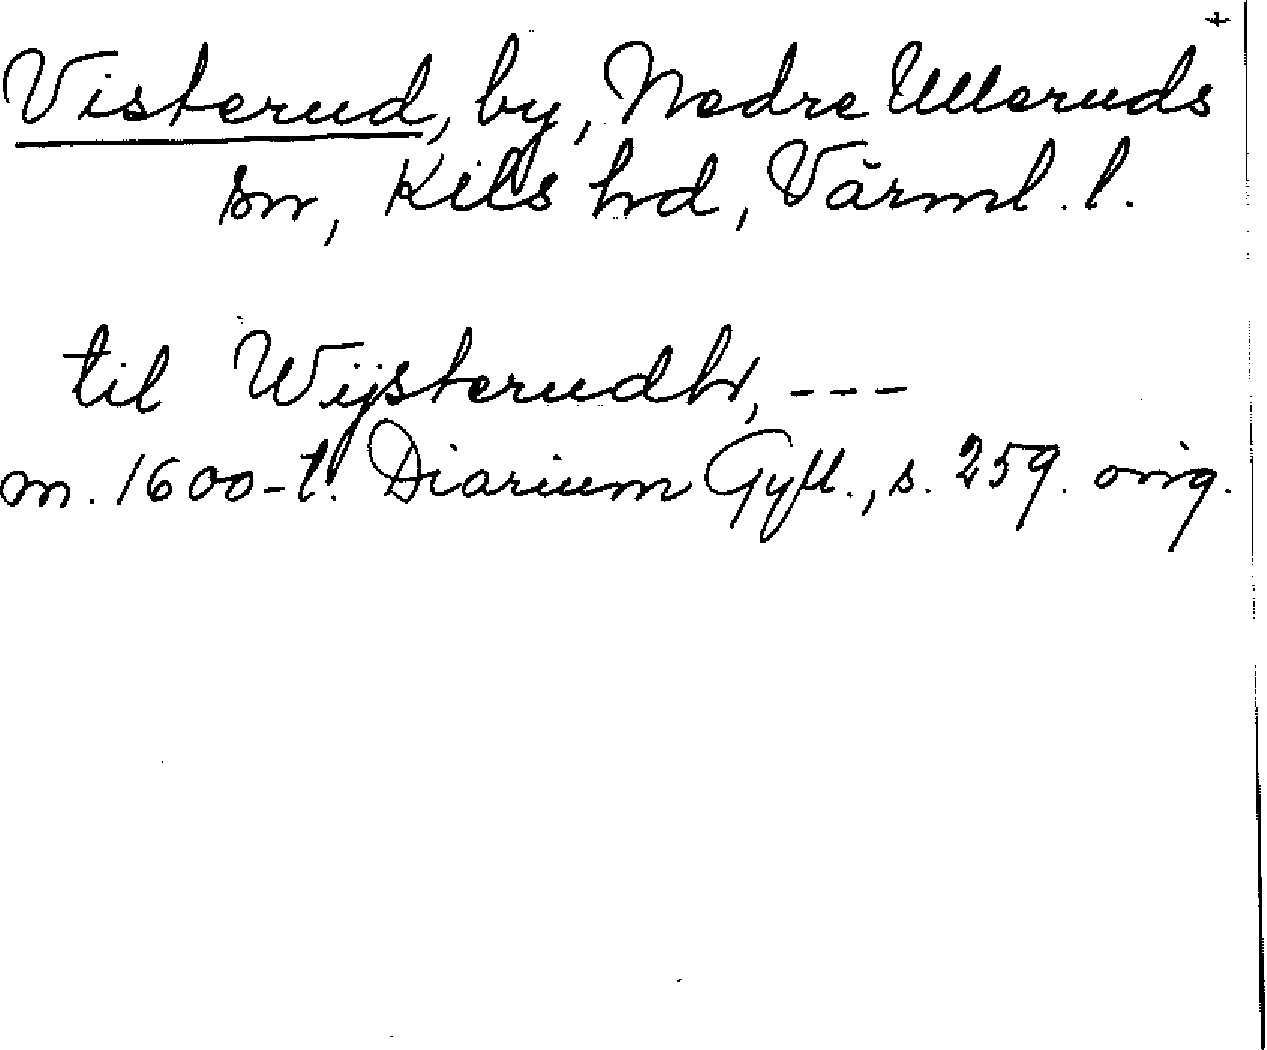 +
Visterud, by, Nedre Ulleruds
sn, Kils hd, Värml. l.
til Wijsterudh, ---
m. 1600-t. Diarium Gyll., s. 259. orig.